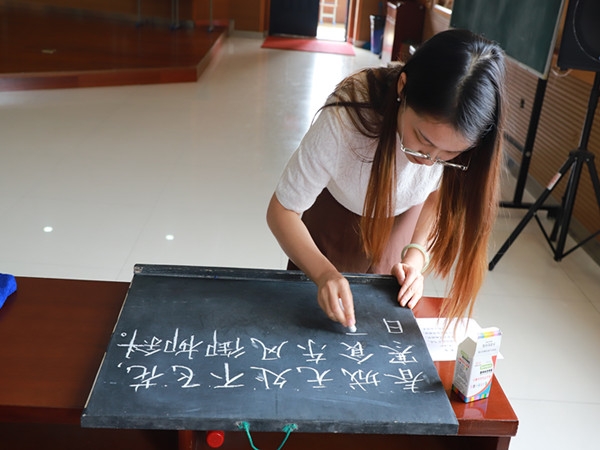 春城无处不飞花,
寒食东风御柳斜。
日